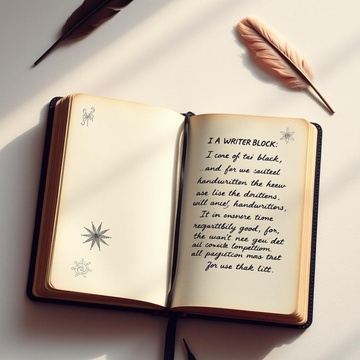 I A WRITER BLOCK:
I core of tai black,
..and for we suiteel
handwritten the heew
ase lise the doitiens,
will ance', handwritiors,
It in onsnre tiome
regartbily good, for,
the wan't nee you det
ail conick lonpetliom.
all pagutcon mas thet
for use thak litt.